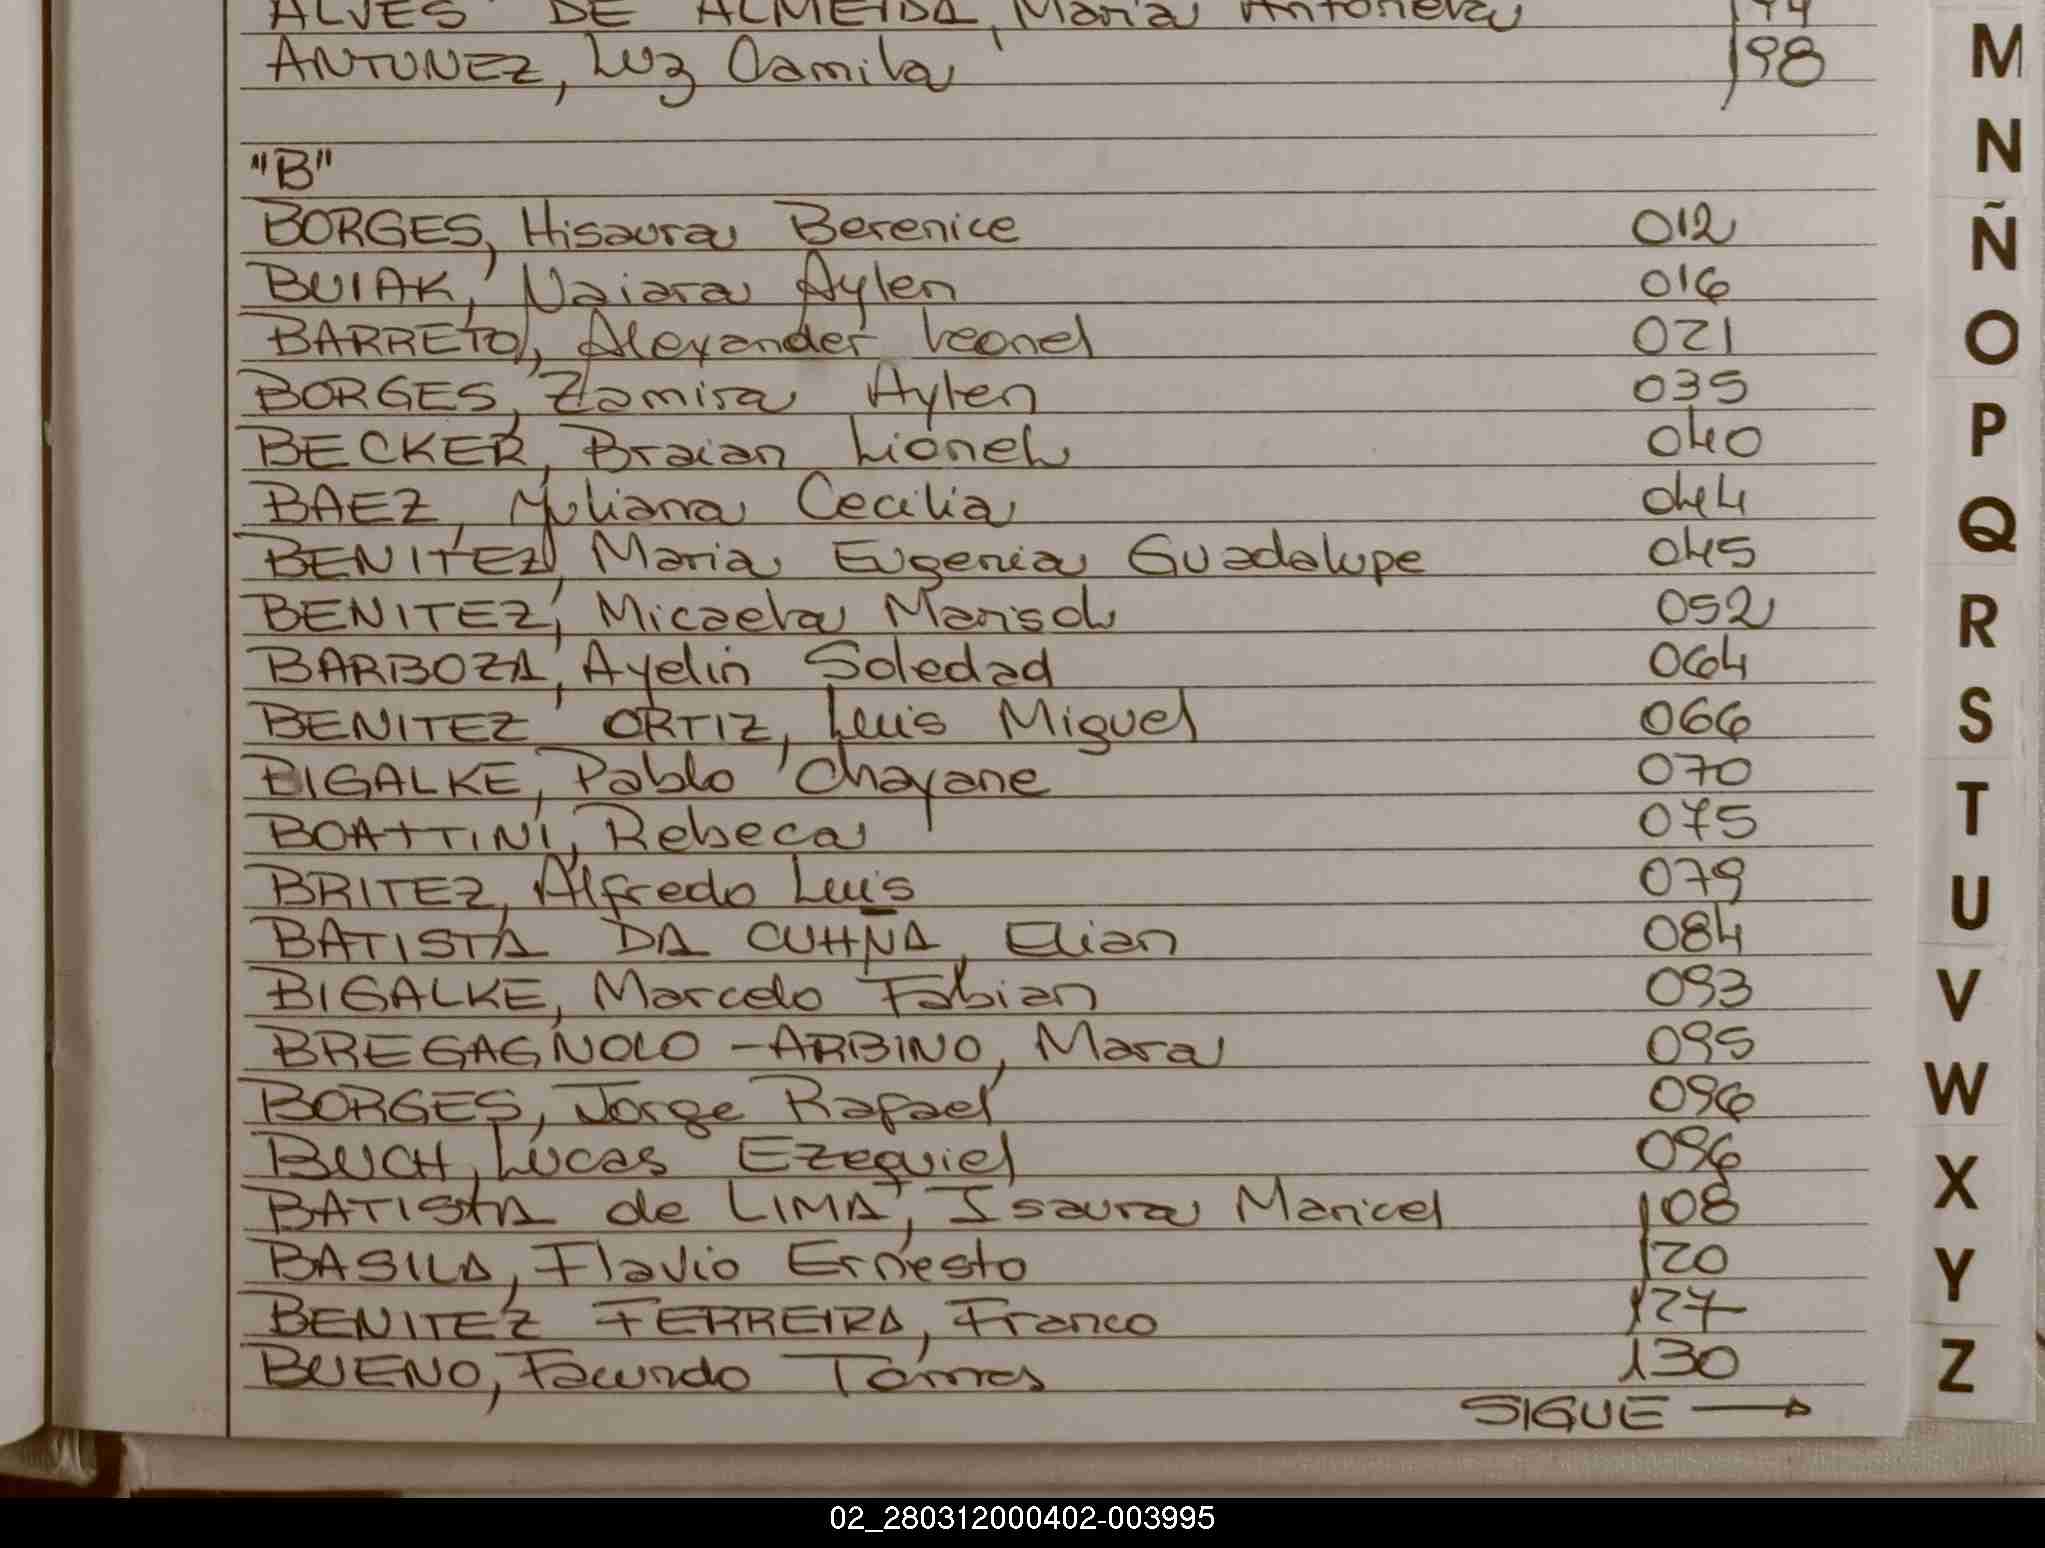 ALVES DE ALMEIDA, Maria Antonela 194
ANTUNEZ, Luz Camila 198
"B"
BORGES, Hisaura Berenice 012
BUIAK, Naiara Aylen 016
BARRETO, Alexander Leonel 021
BORGES, Zamira Aylen 035
BECKER, Braian Lionel 040
BAEZ, Yuliana Cecilia 044
BENITEZ, Maria Eugenia Guadalupe 045
BENITEZ, Micaela Marisol 052
BARBOZA, Ayelin Soledad 064
BENITEZ ORTIZ, Luis Miguel 066
BIGALKE, Pablo Chayane 070
BOATTINI, Rebeca 075
BRITEZ, Alfredo Luis 079
BATISTA DA CUHNA, Elian 084
BIGALKE, Marcelo Fabian 093
BREGAGNOLO-ARBINO, Mara 095
BORGES, Jorge Rafael 096
BUCH, Lucas Ezequiel 096
BATISTA de LIMA, Isaura Maricel 108
BASILA, Flavio Ernesto 120
BENITEZ FERREIRA, Franco 127
BUENO, Facundo Tomas 130
SIGUE →
M
N
Ñ
O
P
Q
R
S
T
U
V
W
X
Y
Z
02_280312000402-003995